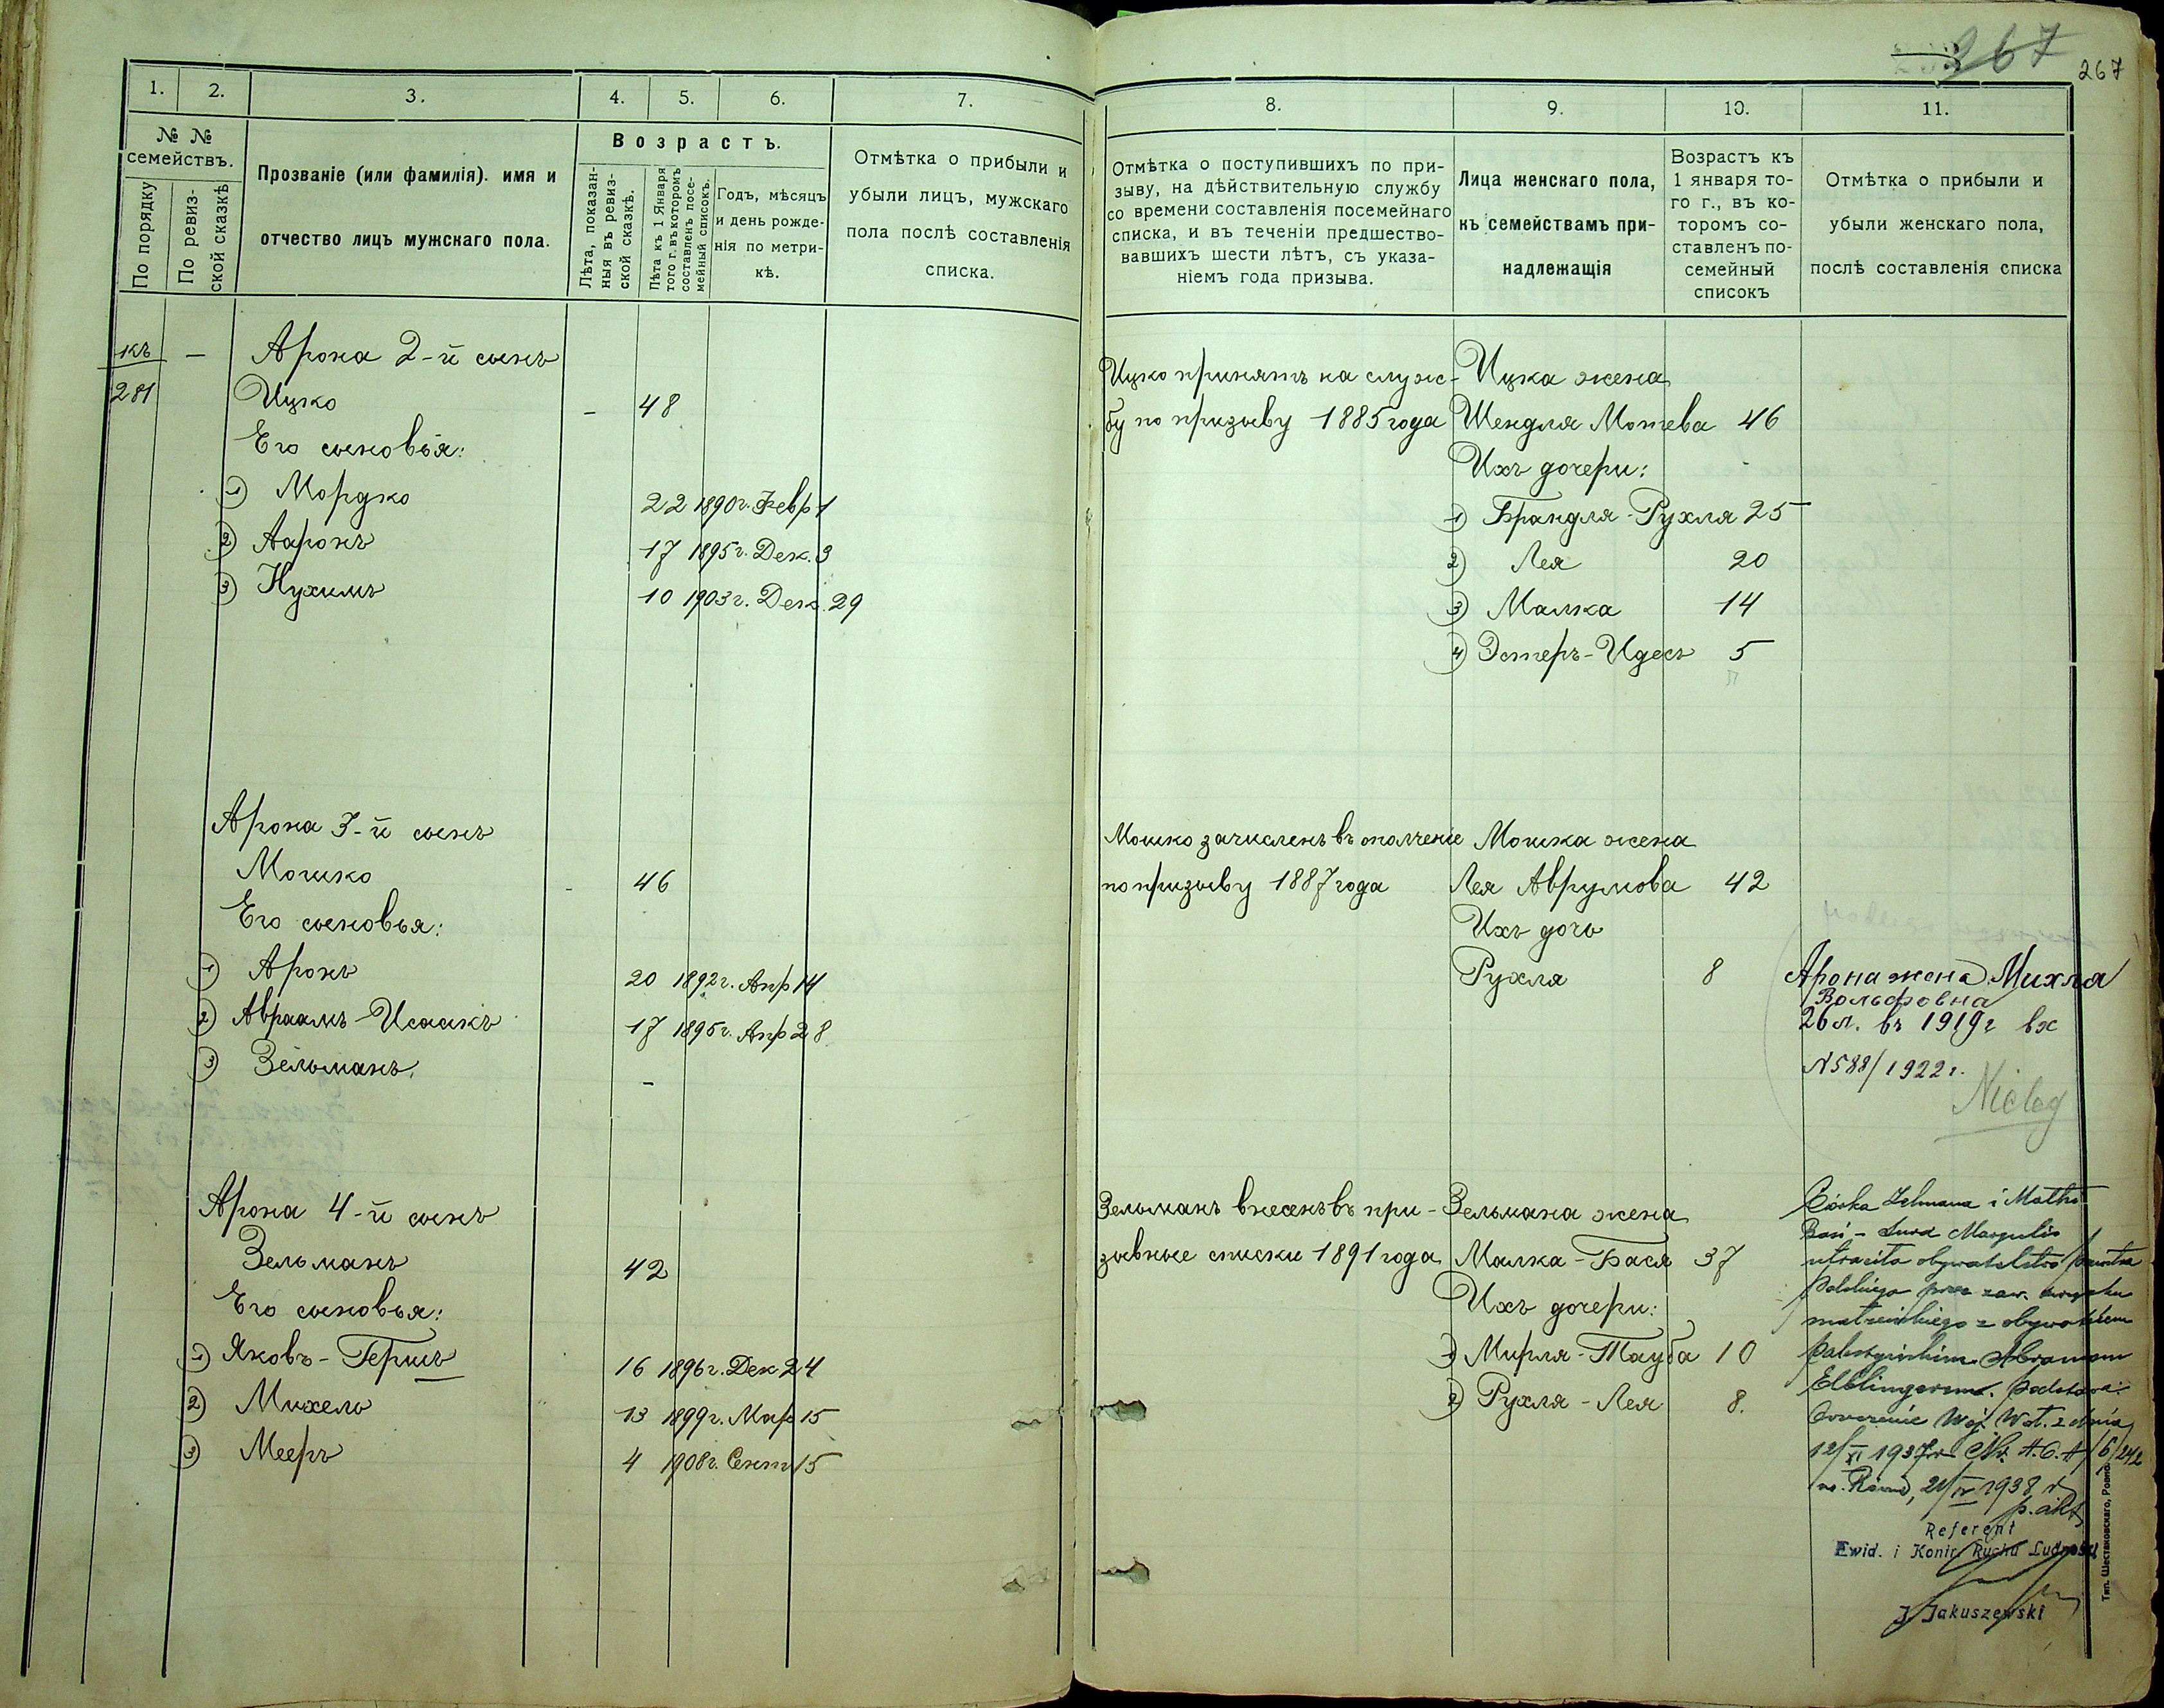 267
267
1.
2.
3.
4.
5.
6.
7.
№ №
семействъ.
По порядку
По ревиз-
ской сказкѣ
Прозваніе (или фамилія). имя и
отчество лицъ мужскаго пола.
Возрастъ.
Лѣта, показан-
ныя въ ревиз-
ской сказкѣ.
Лѣта къ 1 Января
того г. въ которомъ
составленъ посе-
мейный списокъ.
Годъ, мѣсяцъ
и день рожде-
нія по метри-
кѣ.
Отмѣтка о прибыли и
убыли лицъ, мужскаго
пола послѣ составленія
списка.
къ
281
— Арона 2-й сынъ
Ицко - 48
Его сыновья:
1) Мордко 22 1890г. Февр 1
2) Ааронъ 17 1895г. Дек. 3
3) Нухимъ 10 1903г. Дек. 29
Арона 3-й сынъ
Мошко - 46
Его сыновья:
1) Аронъ 20 1892г. Апр 14
2) Авраамъ-Исаакъ 17 1895г. Апр 28
3) Зельманъ. -
Арона 4-й сынъ
Зельманъ 42
Его сыновья:
1) Яковъ-Гершъ 16 1896г. Дек 24
2) Михель 13 1899г. Мар 15
3) Мееръ 4 1908г. Сент 15
8.
9.
10.
11.
Отмѣтка о поступившихъ по при-
зыву, на дѣйствительную службу
со времени составленія посемейнаго
списка, и въ теченіи предшество-
вавшихъ шести лѣтъ, съ указа-
ніемъ года призыва.
Лица женскаго пола,
къ семействамъ при-
надлежащія
Возрастъ къ
1 января то-
го г., въ ко-
торомъ со-
ставленъ по-
семейный
списокъ
Отмѣтка о прибыли и
убыли женскаго пола,
послѣ составленія списка
Ицко принятъ на служ-
бу по призыву 1885 года
Ицка жена
Шендля Мотева 46
Ихъ дочери:
1) Брандля-Рухля 25
2) Лея 20
3) Малка 14
4) Эстеръ-Идесъ 5
Мошко зачисленъ въ ополченіе
по призыву 1887 года
Мошка жена
Лея Аврумова 42
Ихъ дочь
Рухля 8
Арона жена Михля
Вольфовна
26 л. въ 1919г вх
N588/1922г.
Зельманъ внесенъ въ при-
зывные списки 1891 года
Зельмана жена
Малка-Бася 37
Ихъ дочери:
1) Мирля-Тауба 10
2) Рухля-Лея 8.
Córka Zelmana i Małki
Basi - Sura Margulis
utraciła obywatelstwo państwa
Polskiego przez zaw. związku
małżeńskiego z obywatelem
palestyńskim Abramem
Elblingerem. Podstawa:
Orzeczenie Woj. Woł. z dnia
12/XI 1937r Nr. A.O.A/6/242
m. Równe, 21/IV 1938 r
p. akt
Referent
Ewid. i Kontr. Ruchu Ludności
J. Jakuszewski
Тип. Шестаковскаго, Ровно.